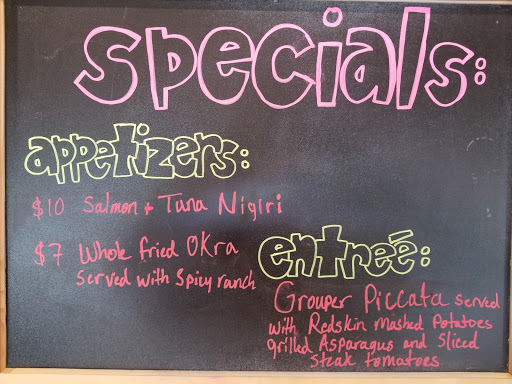 specials:
appetizers:
$10 Salmon + Tuna Nigiri
$7 Whole fried Okra
served with spicy ranch
entreé:
Grouper Piccata served
with Redskin mashed Potatoes
grilled Asparagus and sliced
steak tomatoes